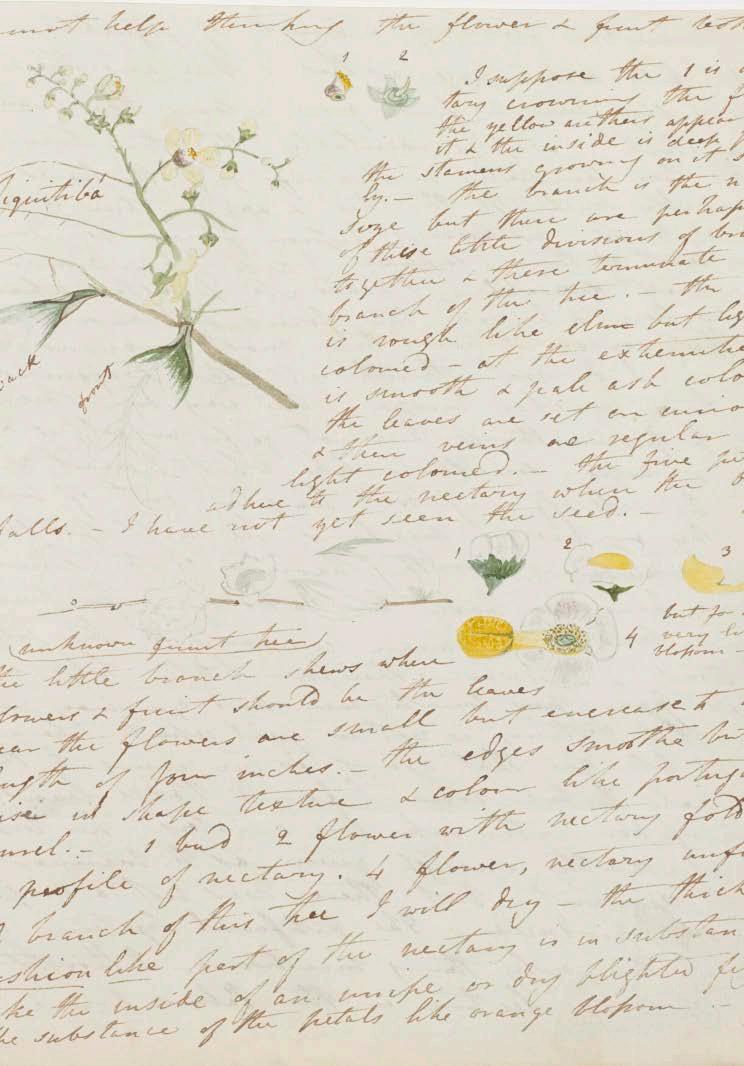 not help thinking the flower & fruit
1 2
I suppose the 1 is
tary crowning the
the yellow anthers appear
it & the inside is deep
the stamens growing on it
ly. – the branch is the
Size but there are perhaps
of these little divisions of
together & these terminate
branch of the tree. – the
is rough like elm but
coloured – at the
is smooth & pale ash
the leaves are set on
& their veins are regular
light coloured. – the five
adhere to the nectary when the
falls. – I have not yet seen the seed. –
Jiquitibá
back
front
1 2 3
4
but
very
blossom –
(unknown fruit tree)
the little branch shews where
flowers & fruit should be the leaves
near the flowers are small but encrease to
length of four inches. – the edges smoothe
in shape texture & colour like
1 bud 2 flower with nectary
profile of nectary. 4 flower, nectary
branch of this tree I will dry – the thick
cushion like part of the nectary is in
the inside of an unripe or dry blighted
the substance of the petals like orange blossom –